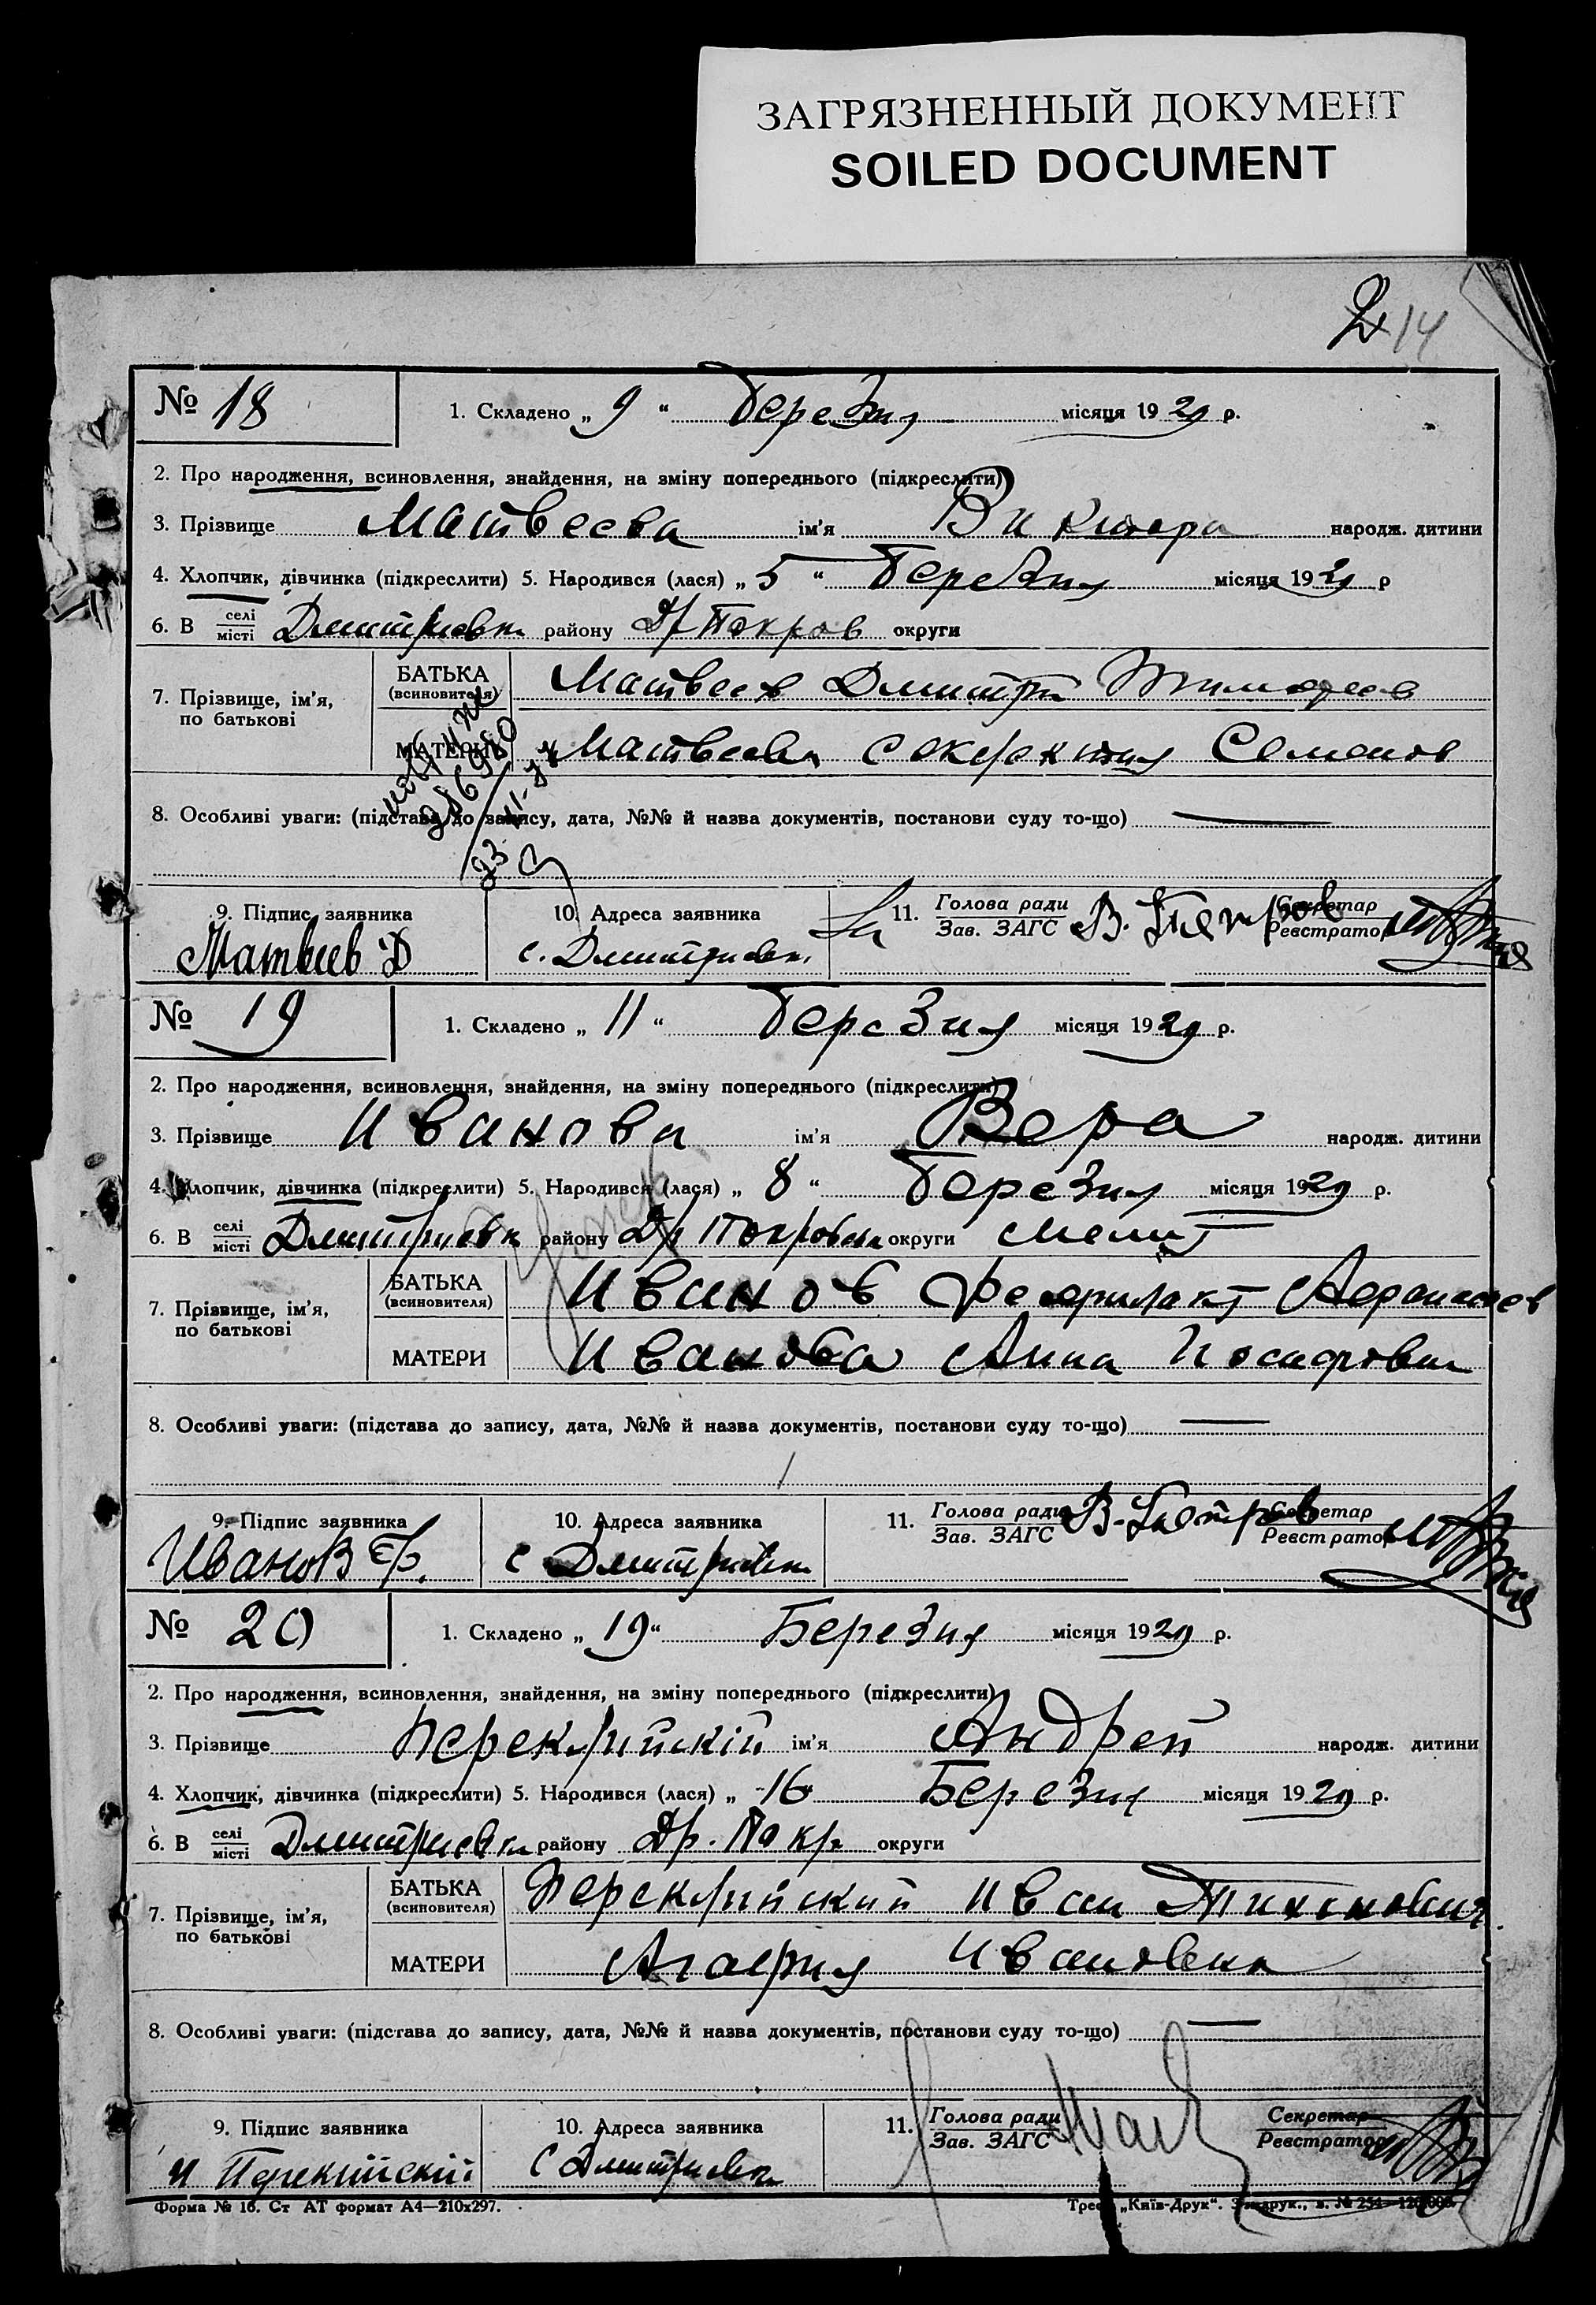 ЗАГРЯЗНЕННЫЙ ДОКУМЕНТ
SOILED DOCUMENT
14
№ 18
1. Складено „ 9 “ Березня місяця 1929 р.
2. Про народження, всиновлення, знайдення, на зміну попереднього (підкреслити)
3. Прізвище Матвеева ім'я Виктора народж. дитини
4. Хлопчик, дівчинка (підкреслити) 5. Народився (лася) „ 5 “ Березня місяця 1929 р
6. В селі/місті Дмитриевка району Др Покров округи
7. Прізвище, ім'я, по батькові
БАТЬКА (всиновителя) Матвеев Дмитри
МАТЕРИ Матвеева Семенов
8. Особливі уваги: (підстава до запису, дата, №№ й назва документів, постанови суду то-що)
9. Підпис заявника
Матвеев Д
10. Адреса заявника
с. Дмитриевка
11. Голова ради/Зав. ЗАГС В. Петров Секретар/Реєстратор
№ 19
1. Складено „ 11 “ Березня місяця 1929 р.
2. Про народження, всиновлення, знайдення, на зміну попереднього (підкреслити)
3. Прізвище Иванова ім'я Вера народж. дитини
4. Хлопчик, дівчинка (підкреслити) 5. Народився (лася) „ 8 “ Березня місяця 1929 р.
6. В селі/місті Дмитриевка району Др Покровськ округи Мелит
7. Прізвище, ім'я, по батькові
БАТЬКА (всиновителя) Иванов Феофилакт Афанасьев
МАТЕРИ Иванова Анна Иосифовна
8. Особливі уваги: (підстава до запису, дата, №№ й назва документів, постанови суду то-що)
9. Підпис заявника
Иванов Ф.
10. Адреса заявника
с Дмитриевка
11. Голова ради/Зав. ЗАГС В. Петров Секретар/Реєстратор
№ 20
1. Складено „ 19 “ Березня місяця 1929 р.
2. Про народження, всиновлення, знайдення, на зміну попереднього (підкреслити)
3. Прізвище ім'я Андрей народж. дитини
4. Хлопчик, дівчинка (підкреслити) 5. Народився (лася) „ 16 Березня місяця 1929 р.
6. В селі/місті Дмитриевка району Др. Покр округи
7. Прізвище, ім'я, по батькові
БАТЬКА (всиновителя) Иван Тихонович
МАТЕРИ Ивановна
8. Особливі уваги: (підстава до запису, дата, №№ й назва документів, постанови суду то-що)
9. Підпис заявника
10. Адреса заявника
с Дмитриевка
11. Голова ради/Зав. ЗАГС Секретар/Реєстратор
Форма № 16. Ст АТ формат А4—210x297.
Трест „Київ-Друк“.